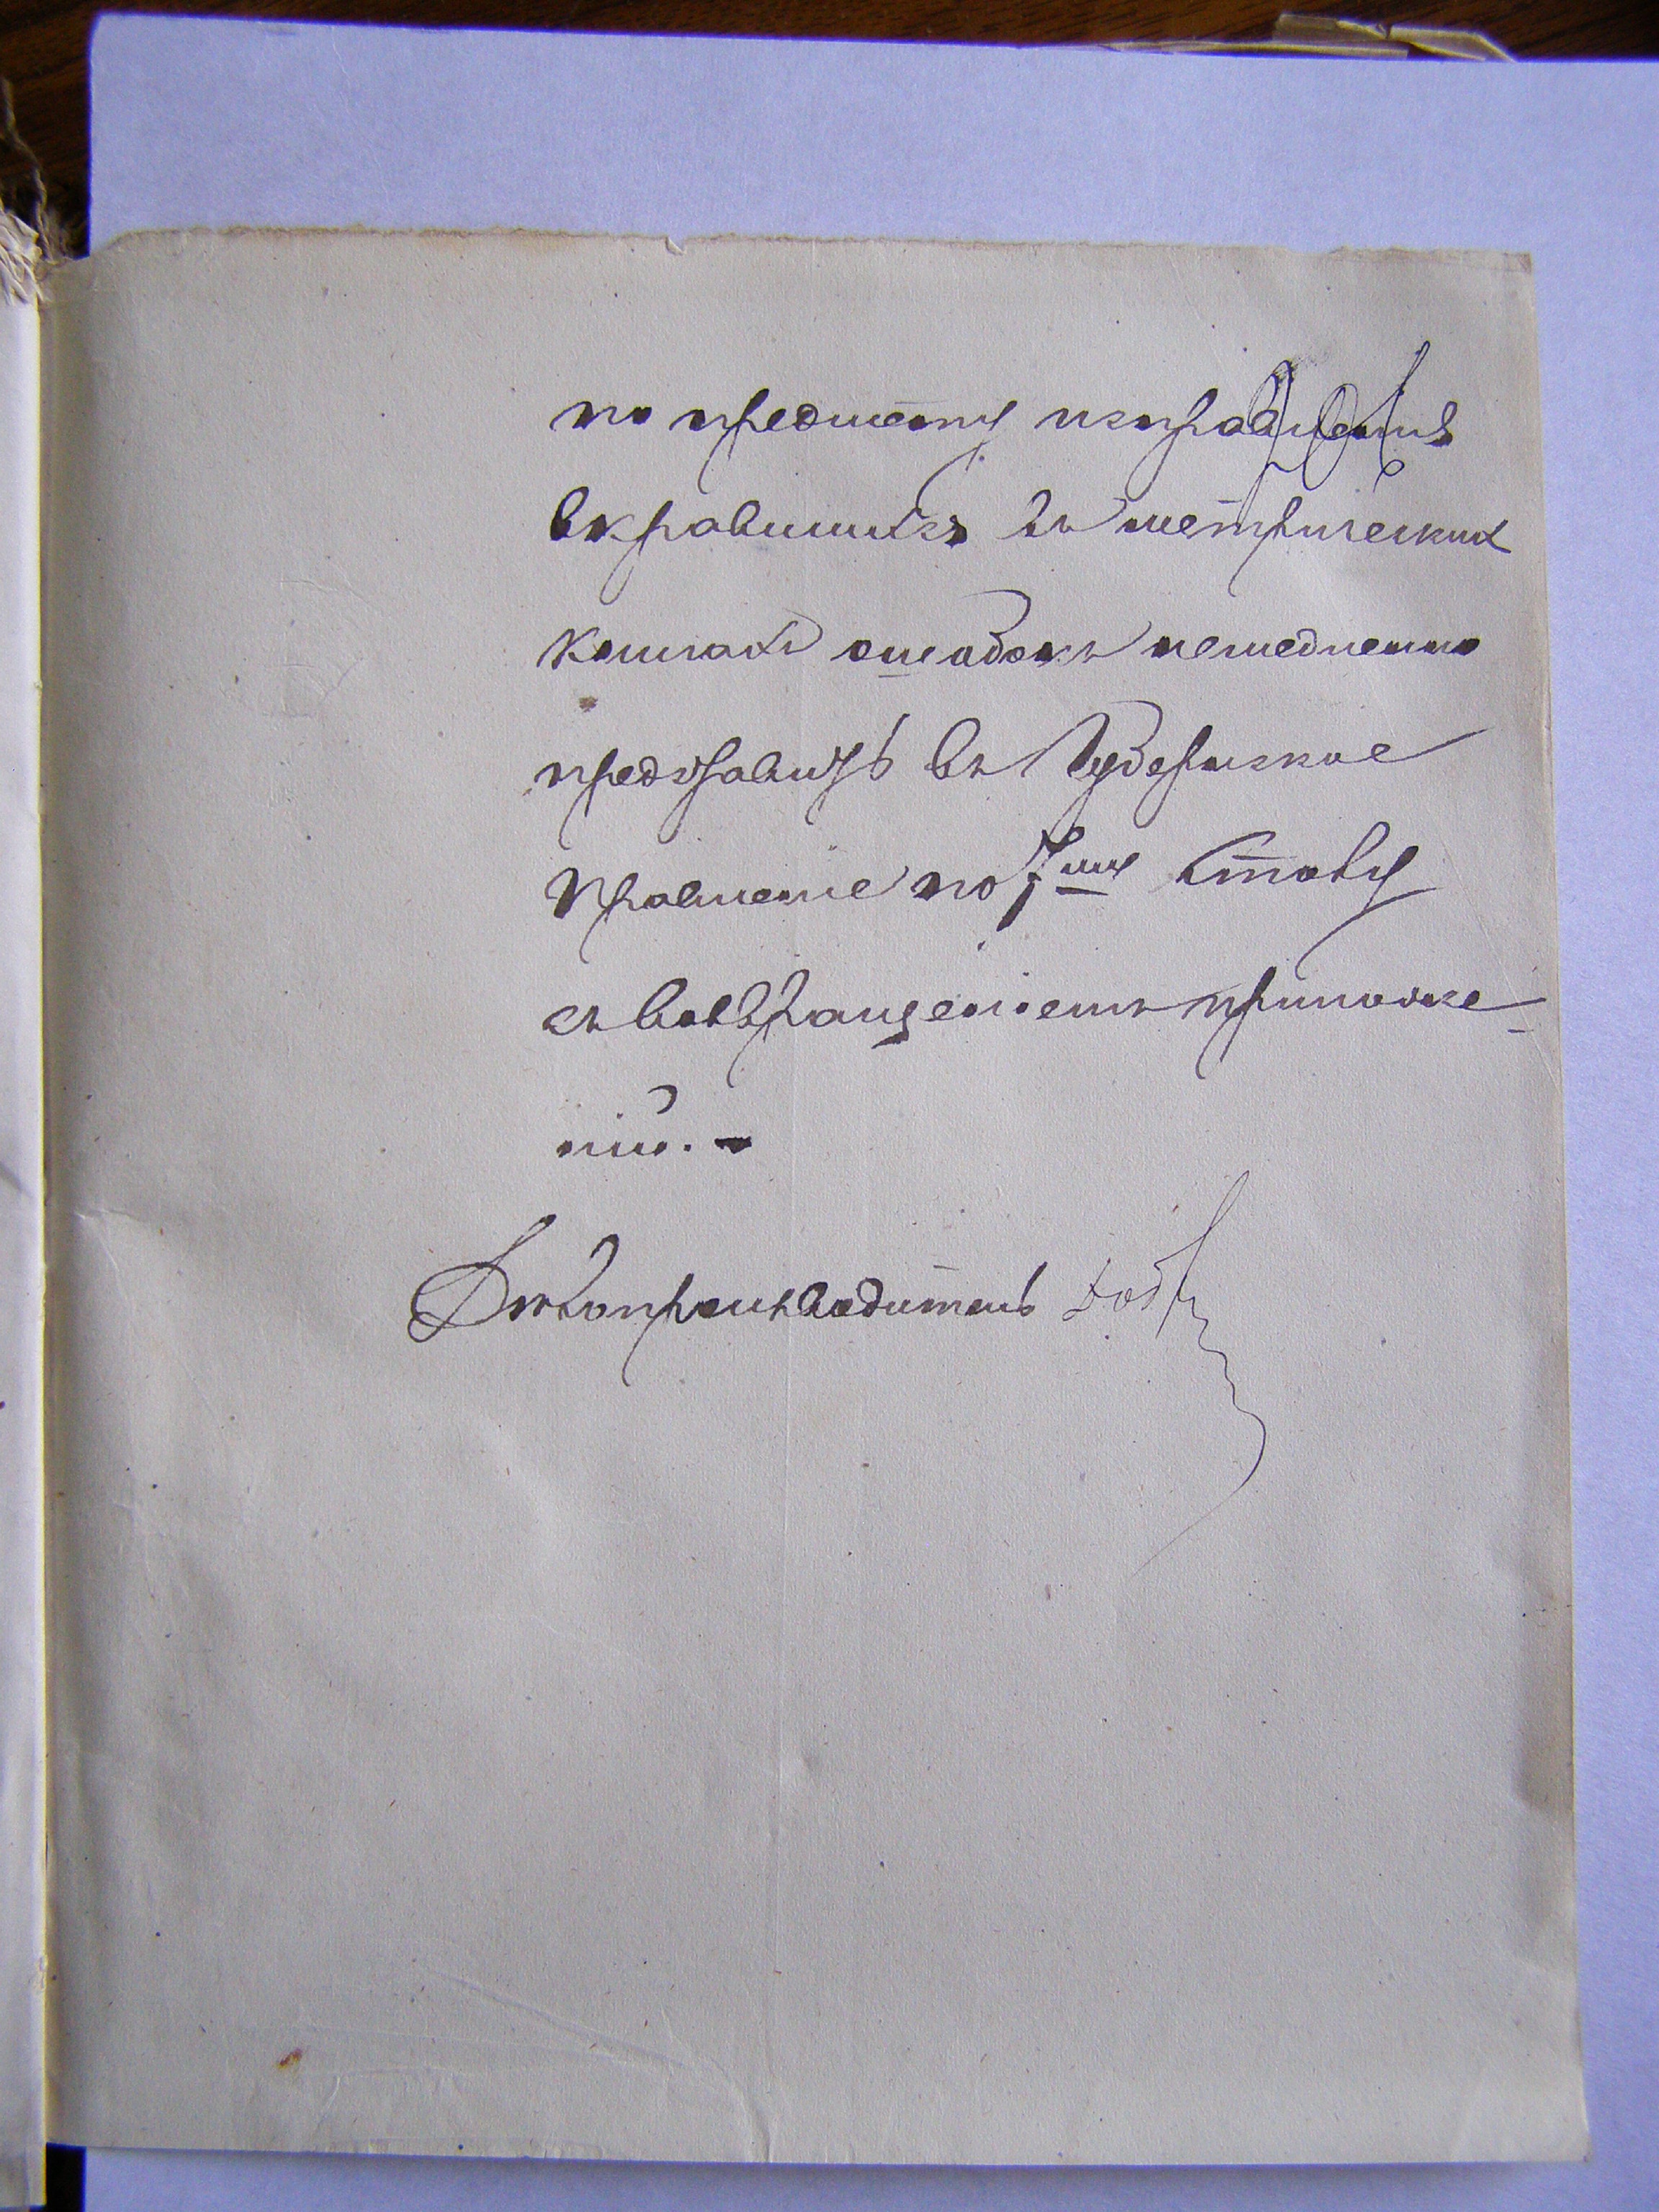 по предмету исправленія
вкравшихся въ метрическихъ
книгахъ ошибокъ немедленно
представить въ Губернское
Правленіе по 7му столу
съ возвращеніемъ приложе-
ній. -
Делопроизводитель